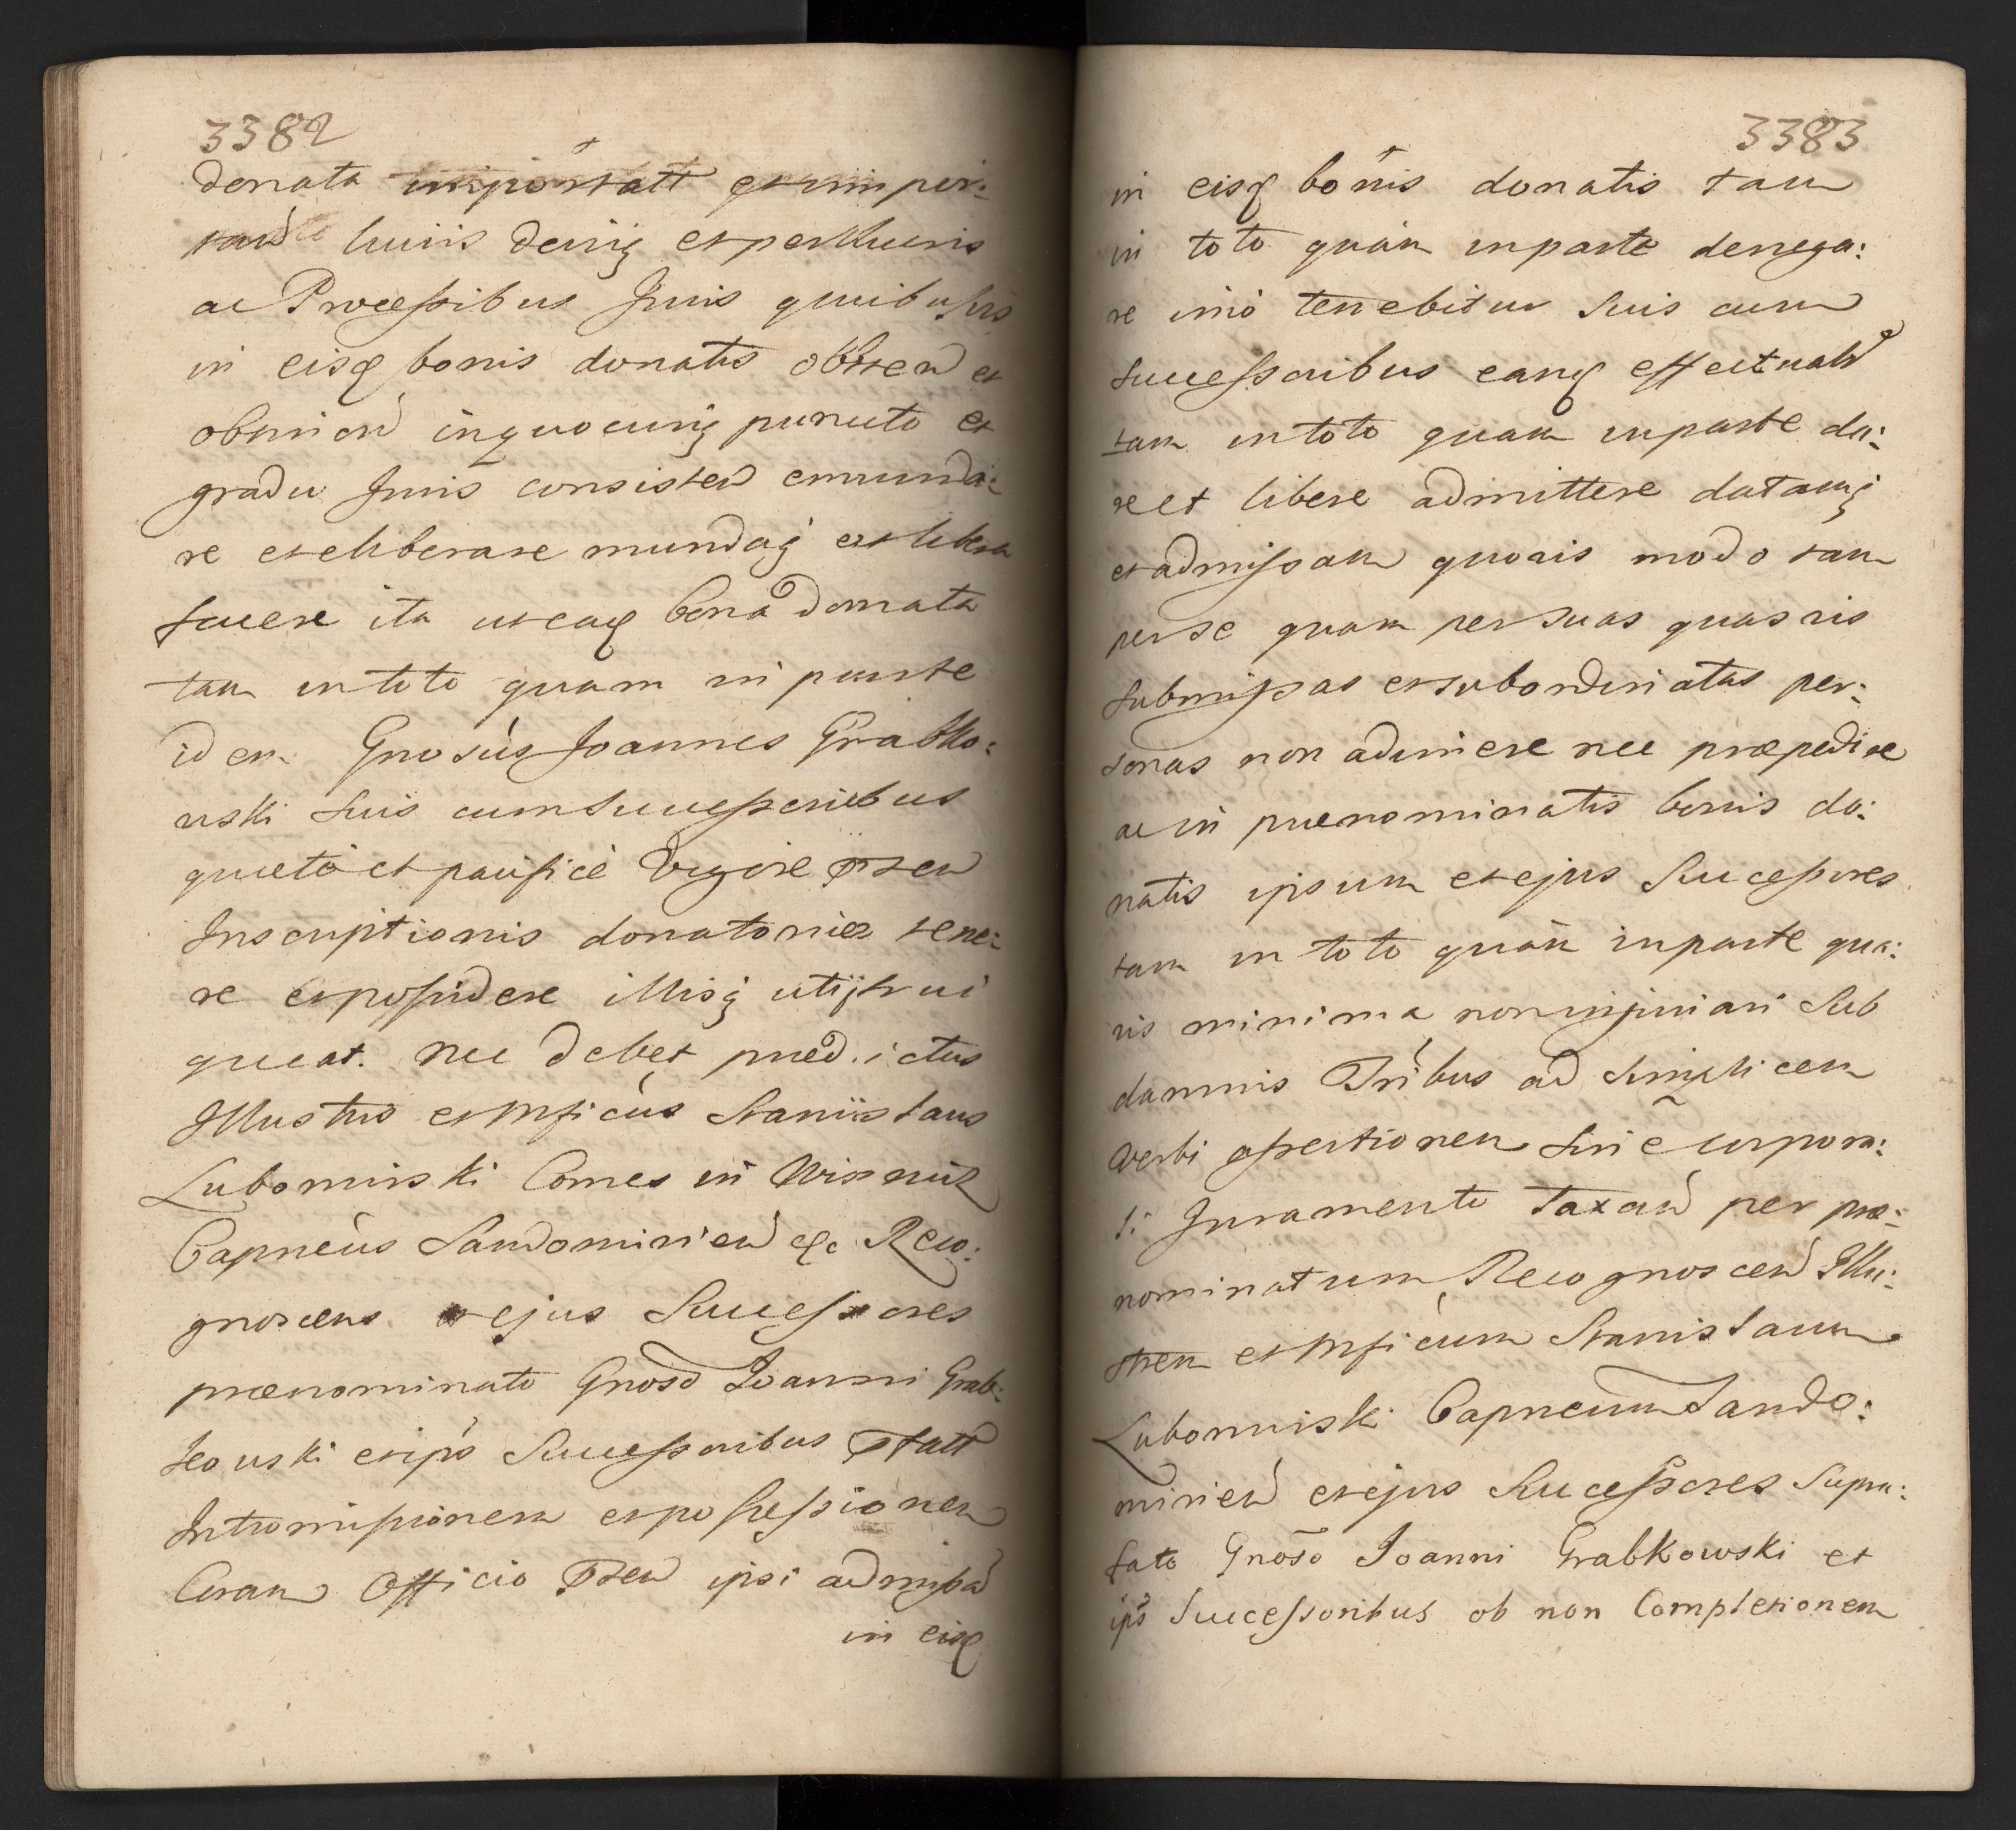 3382
donata important et impor:
tand huiis deniq et perlhueris
ac Processibus Juris quibusvis
in eisq bonis donatis obtten et
obtinen inquocunq puncto et
gradu Juris consisten emunda:
re et eliberare mundaq et libera
facere ita ut eaq bona donata
tam in toto quam in parte
idem Gnosus Joannes Grabko:
uski suis cum Successoribus
quiete et pacifice vigore pnten
Inscriptionis donatoriæ tene:
re et possidere illisq uti frui
queat. nec debet prædictus
Illustris et Mficus Stanislaus
Lubomirski Comes in Wisnicz
Capneus Sandomirien &c Reco:
gnoscens et ejus Successores
prænominato Gnoso Joanni Grab:
kouski et ips Successoribus statt
Intromissionem et possessionem
Coram Officio pnten ipsi admissa
in eisq
3383
in eisq bonis donatis tam
in toto quam in parte denega:
re imo tenebitur suis cum
Successoribus eamq effectuale
tam in toto quam in parte da:
re et libere admittere datamq
et admissam quovis modo tam
per se quam per suas quasvis
submissas et subordinatas per:
sonas non adimere nec præpedire
ac in prænominatis bonis do:
natis ipsum et ejus Successores
tam in toto quam in parte qua:
vis minima non injuriari sub
damnis Tribus ad simplicem
Verbi assertionem sine corpora:
li Juramento taxan per præ:
nominatum Recognoscen Illu:
strem et Mficum Stanislaum
Lubomirski Capneum Sando:
mirien et ejus Successores supra:
fato Gnoso Joanni Grabkowski et
ips Successoribus ob non Completionem